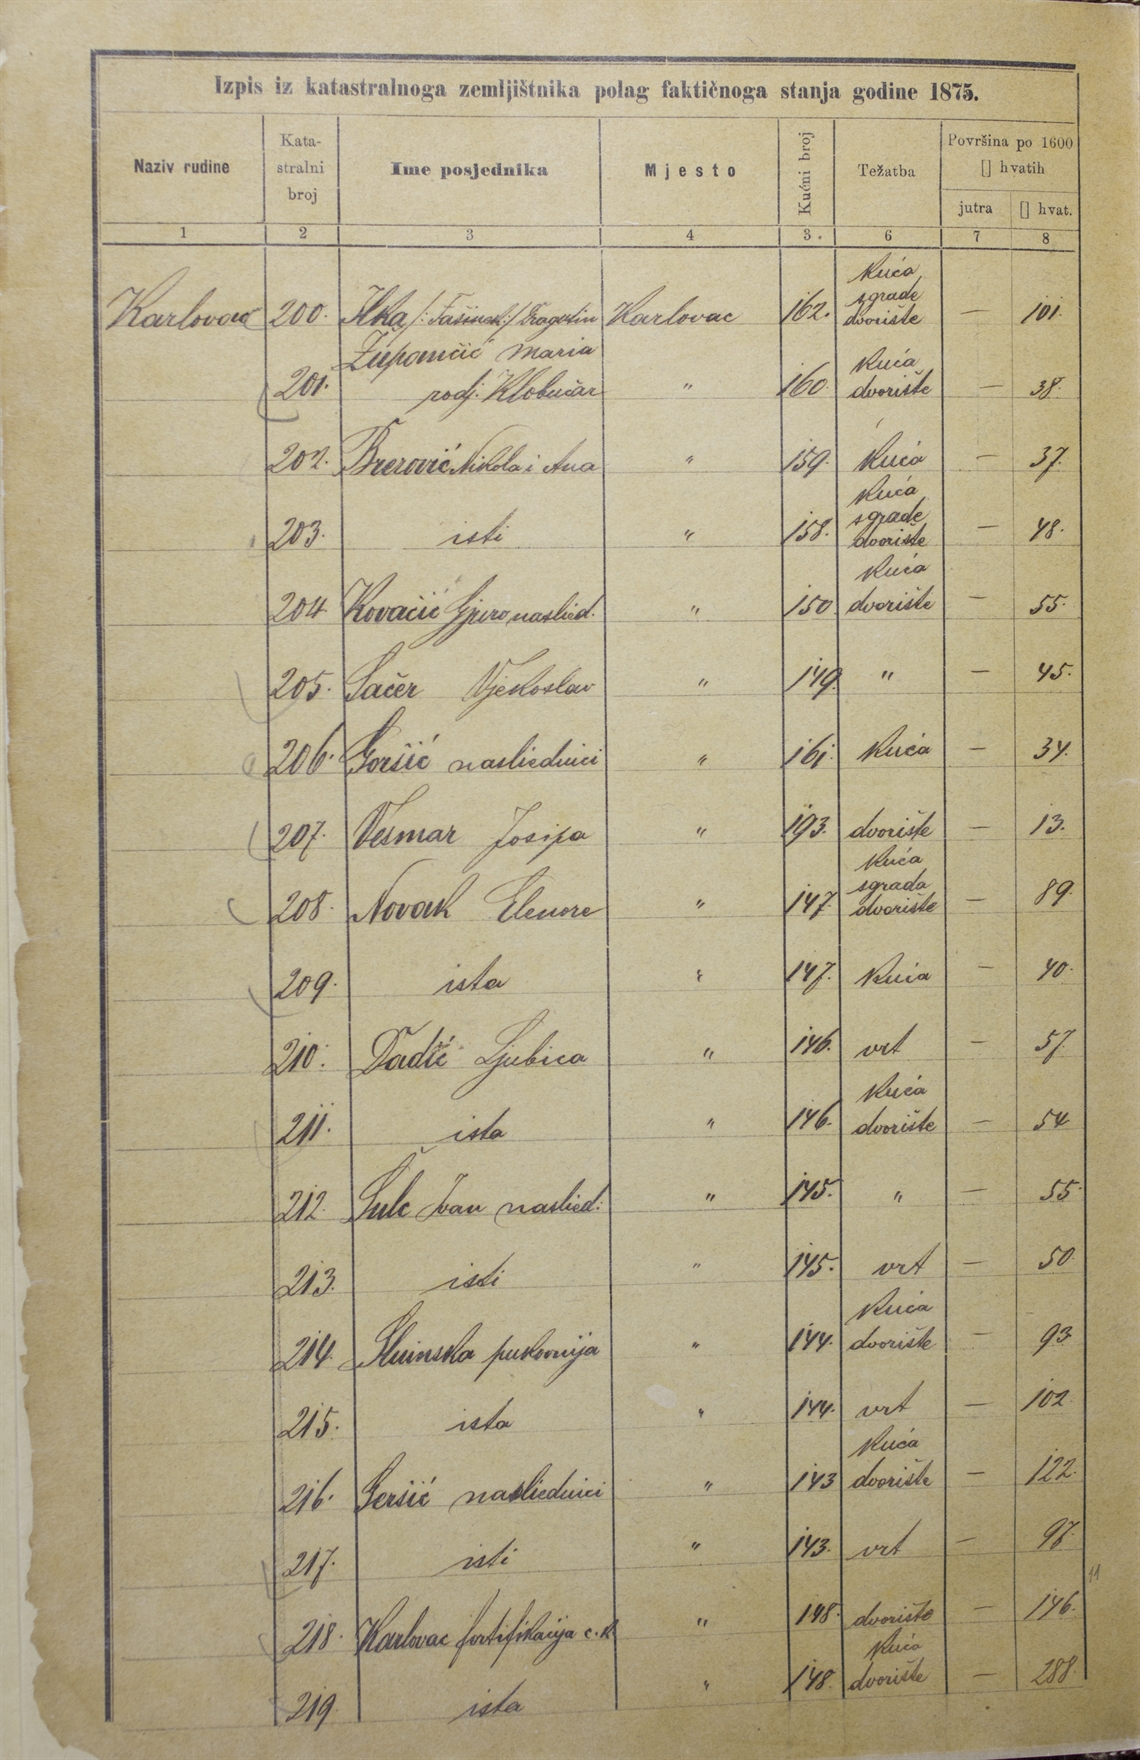 Izpis iz katastralnoga zemljištnika polag faktičnoga stanja godine 1875.
Naziv rudine Kata-stralni broj Ime posjednika Mjesto Kućni broj Težatba Površina po 1600 [] hvatih
jutra [] hvat.
1 2 3 4 3. 6 7 8
Karlovac 200. Ilka /: :/ Dragutin Karlovac 162. Kuća sgrade dvorište — 101.
Zupančić Maria
201. rodj. Klobučar " 160. Kuća dvorište — 38.
202. Nikola i Ana " 159. Kuća — 37.
203. isti " 158. Kuća sgrade dvorište — 48.
204 Kovačić Gjuro naslied. " 150 Kuća dvorište — 55.
205. Sačer Vjekoslav " 149. " — 45.
206. Goršić nasliednici " 161. Kuća — 34.
207. Vesmar Josipa " 193. dvorište — 13.
208. Novak Elenore " 147. Kuća sgrada dvorište — 89.
209. ista " 147. Kuća — 40.
210. Dadić Ljubica " 146. vrt — 57
211. ista " 146. Kuća dvorište — 54
212. Šulc Ivan naslied: " 145. " — 55.
213. isti " 145. vrt — 50
214. Sluinska pukovnija " 144. Kuća dvorište — 93
215. ista " 144. vrt — 102
216. Geršić nasliednici " 143 Kuća dvorište — 122.
217. isti " 143. vrt — 97.
11
218. Karlovac fortifikacija c. k. " 148. dvorište — 146.
219. ista " 148. Kuća dvorište — 288.